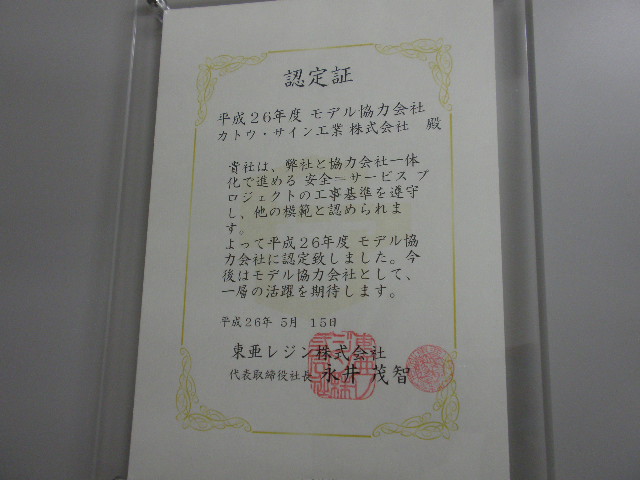 認定証
平成26年度 モデル協力会社
カトウ・サイン工業 株式会社 殿
貴社は、弊社と協力会社一体
化で進める 安全〜サービス プ
ロジェクトの工事基準を遵守
し、他の模範と認められま
す。
よって平成26年度 モデル協
力会社に認定致しました。今
後はモデル協力会社として、
一層の活躍を期待します。
平成26年 5月 15日
東亜レジン株式会社
代表取締役社長 永井 茂智